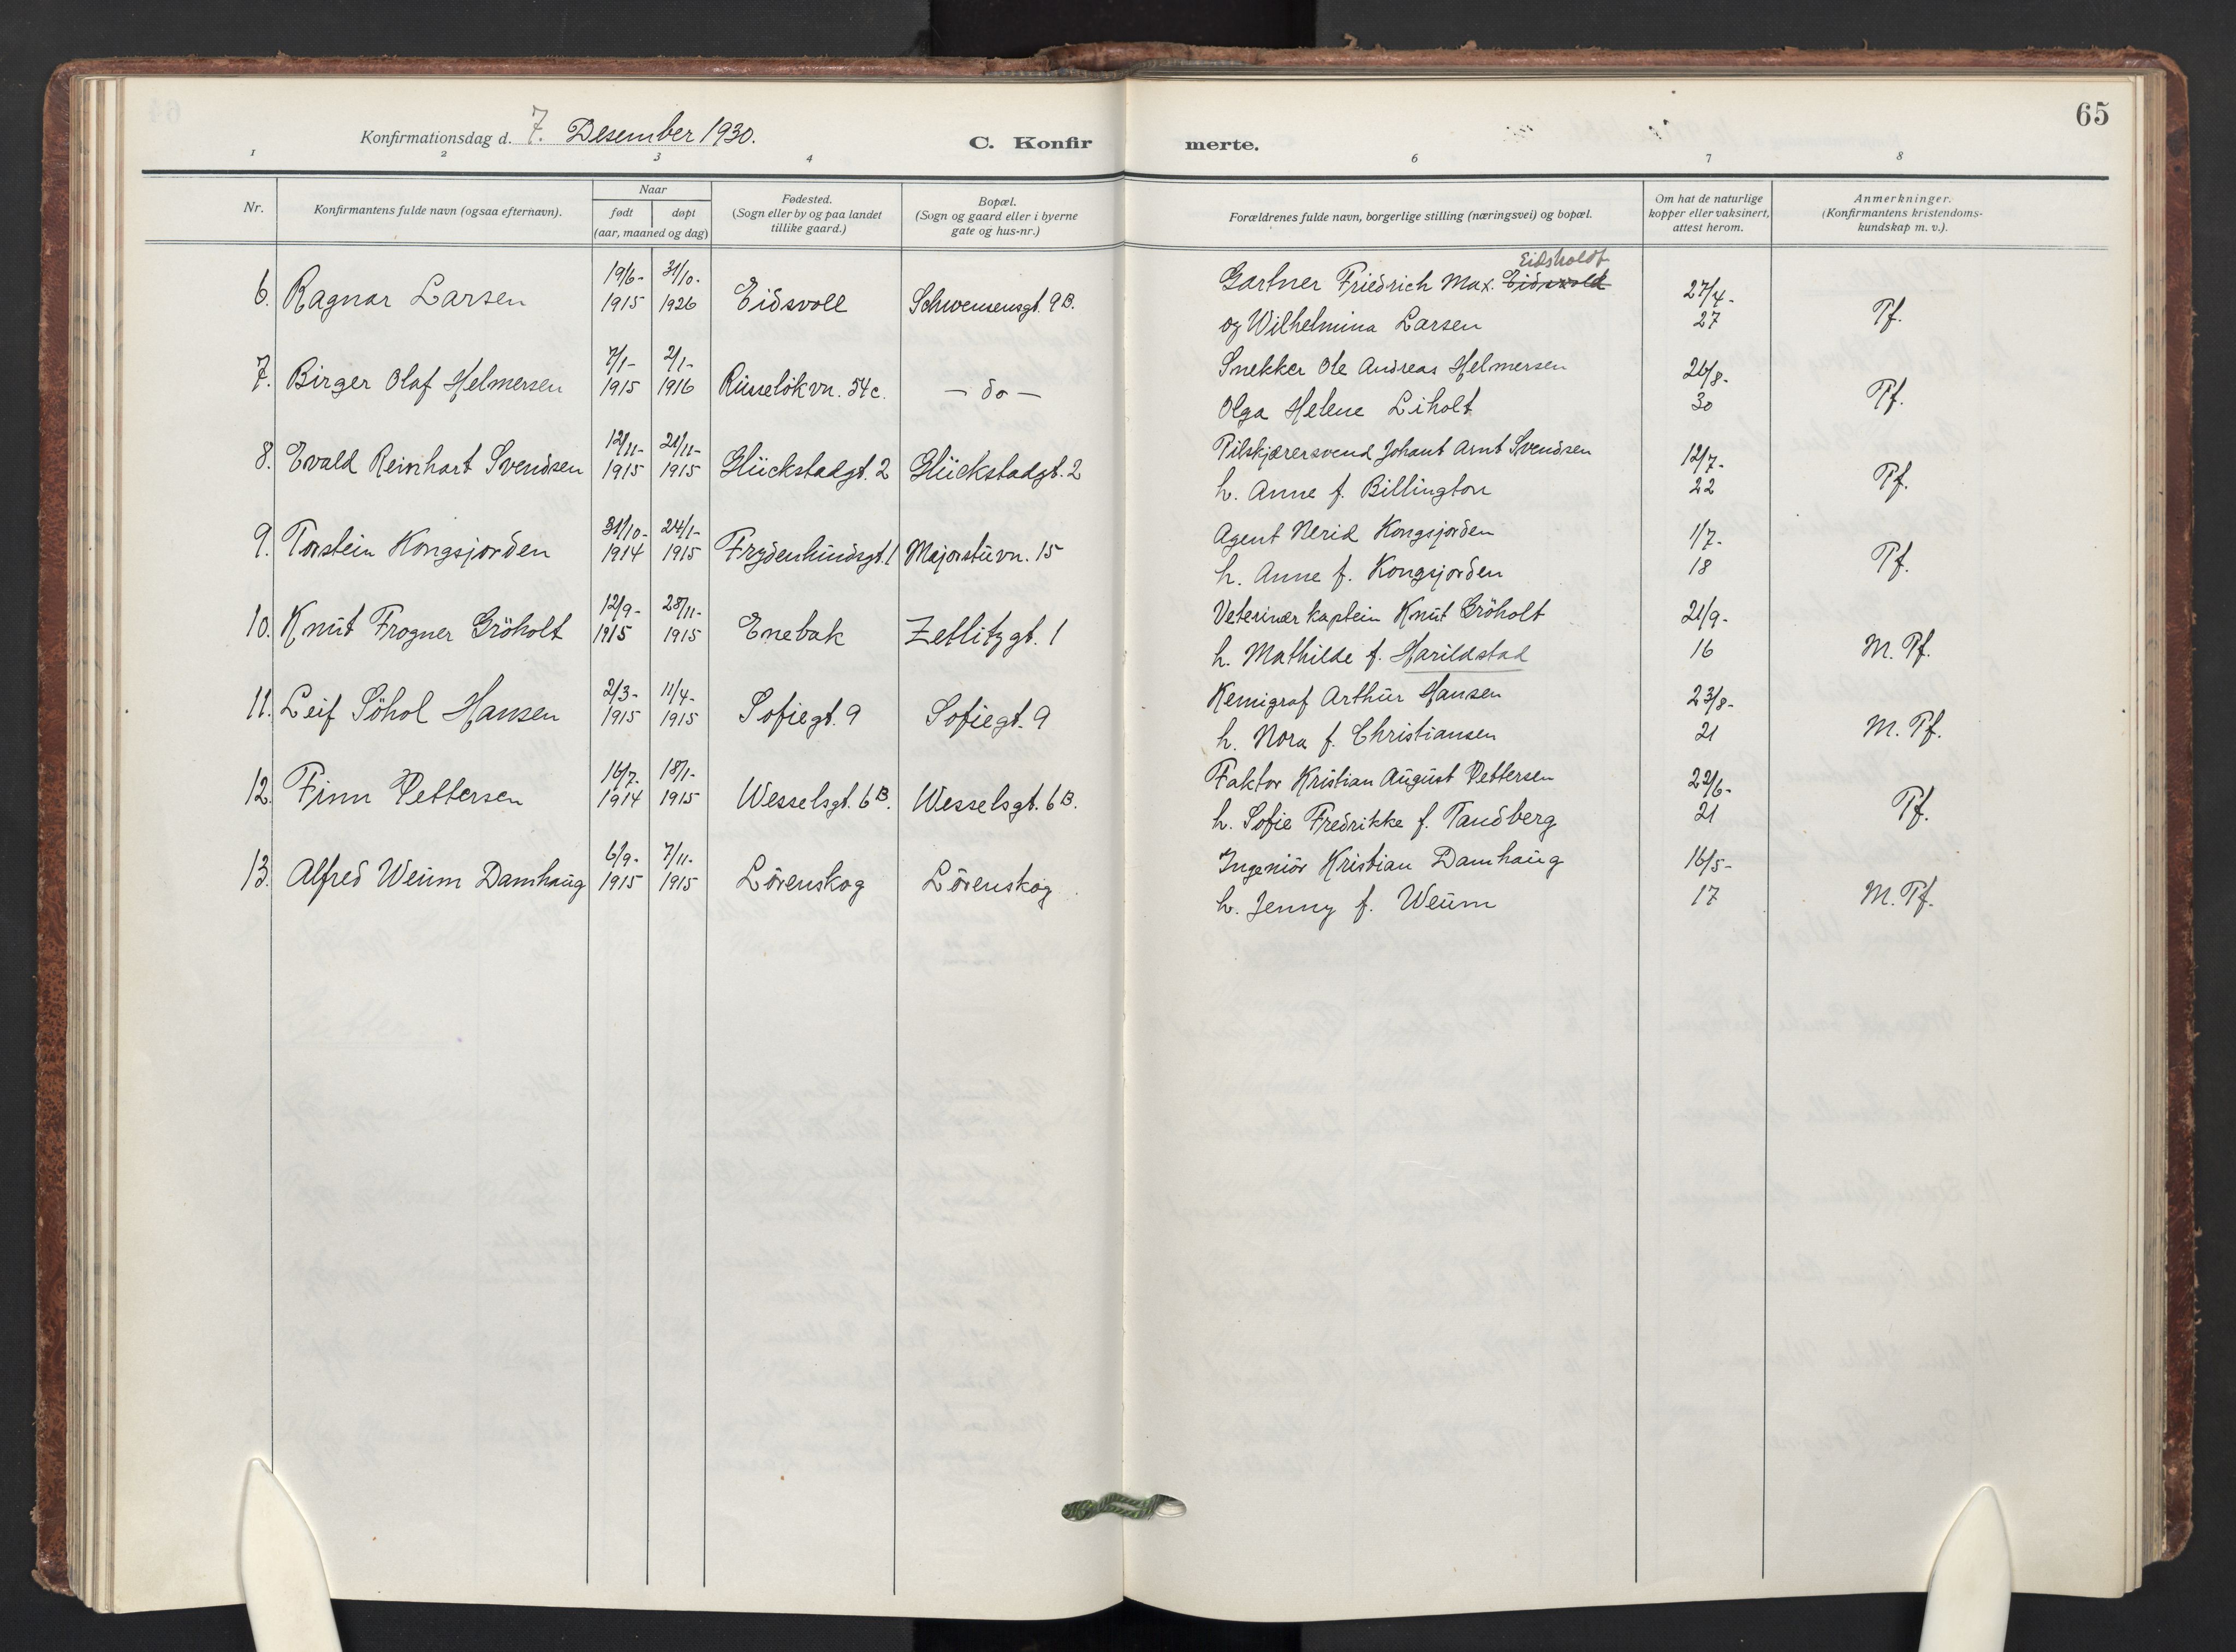 65
Konfirmationsdag d. 7. Desember 1930.
C. Konfir
merte.
1 2 3 4 6 7 8
Nr.
Konfirmantens fulde navn (ogsaa efternavn).
Naar
født døpt
(aar, maaned og dag)
Fødested.
(Sogn eller by og paa landet
tillike gaard.)
Bopæl.
(Sogn og gaard eller i byerne
gate og hus-nr.)
Forældrenes fulde navn, borgerlige stilling (næringsvei) og bopæl.
Om hat de naturlige
kopper eller vaksinert,
attest herom.
Anmerkninger.
(Konfirmantens kristendoms-
kundskap m. v.).
Eidsholdt
19/6- 31/10- Gartner Friedrich Max. Eidsvold 27/4-
6. Ragnar Larsen 1915 1926 Eidsvoll Schwensensgt. 9B. og Wilhelmina Larsen 27 Tf.
7/1- 2/1- Snekker Ole Andreas Helmersen 26/8-
7. Birger Olaf Helmersen 1915 1916 Ruseløkvn. 54c. — do — Olga Helene Liholt 30 Tf.
12/11- 21/11- Pilskjærersvend Johant Arnt Svendsen 12/7-
8. Evald Reinhart Svendsen 1915 1915 Glückstadgt. 2 Glückstadgt. 2 h. Anne f. Billington 22 Tf.
31/10- 24/1- Agent Nerid Kongsjorden 1/7-
9. Torstein Kongsjorden 1914 1915 Frydenlundsgt. 1 Majorstuvn. 15 h. Anne f. Kongsjorden 18 Tf.
12/9- 28/11- Veterinær kaptein Knut Gröholt 21/9-
10. Knut Frogner Gröholt 1915 1915 Enebak Zetlitzgt. 1 h. Mathilde f. Harildstad 16 M. Tf.
2/3- 11/4- Kemigraf Arthur Hansen 23/8-
11. Leif Söhol Hansen 1915 1915 Sofiegt. 9 Sofiegt. 9 h. Nora f. Christiansen 21 M. Tf.
16/7- 18/1- Faktor Kristian August Pettersen 22/6-
12. Finn Pettersen 1914 1915 Wesselsgt. 6B. Wesselsgt. 6B. h. Sofie Fredrikke f. Tandberg 21 Tf.
6/9- 7/11- Ingeniör Kristian Damhaug 16/5-
13. Alfred Weum Damhaug 1915 1915 Lörenskog Lörenskog h. Jenny f. Weum 17 M. Tf.